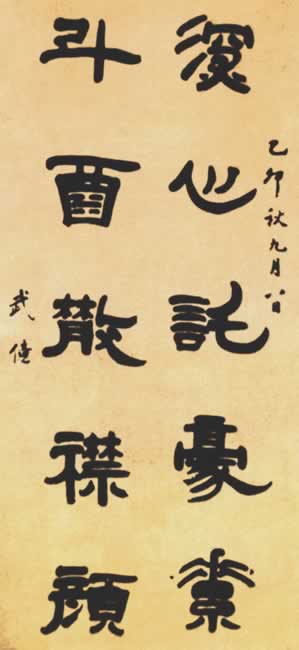 乙卯秋九月八日
深心託豪素
斗酉散襟顏
武億